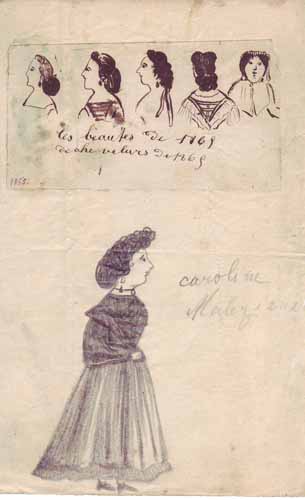 les beautes de 1869
de che velurs de 1869
caroline